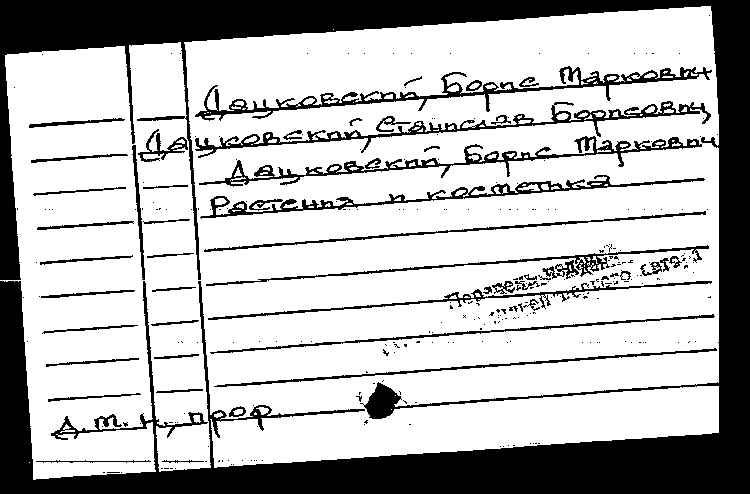 Дацковский, Борис Маркович
Дацковский, Станислав Борисович,
Дацковский, Борис Маркович
Растения и косметика
Д.м.н., проф.